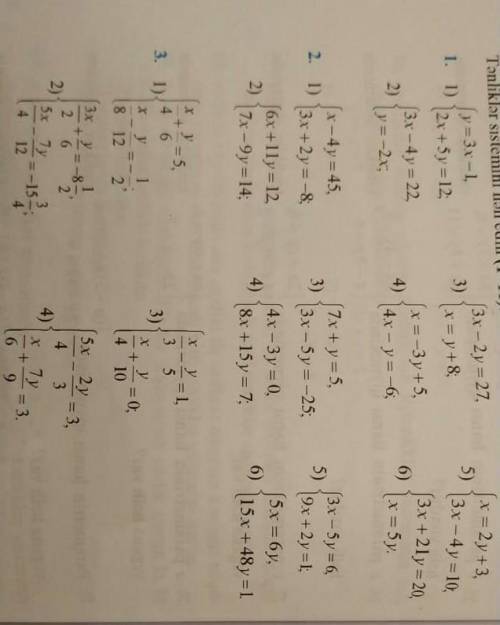 Tənliklər sistemini həll edin
1. 1) { y = 3x − 1, 2x + 5y = 12;
3) { 3x − 2y = 27, x = y + 8;
5) { x = 2y + 3, 3x − 4y = 10;
2) { 3x − 4y = 22, y = −2x;
4) { x = −3y + 5, 4x − y = −6;
6) { 3x + 21y = 20, x = 5y.
2. 1) { x − 4y = 45, 3x + 2y = −8,
3) { 7x + y = 5, 3x − 5y = −25;
5) { 3x − 5y = 6, 9x + 2y = 1;
2) { 6x + 11y = 12, 7x − 9y = 14;
4) { 4x − 3y = 0, 8x + 15y = 7;
6) { 5x = 6y, 15x + 48y = 1.
3. 1) { x/4 + y/6 = 5, x/8 − y/12 = −1/2;
3) { x/3 − y/5 = 1, x/4 + y/10 = 0;
2) { 3x/2 + y/6 = −8 1/2, 5x/4 − 7y/12 = −15 3/4;
4) { 5x/4 − 2y/3 = 3, x/6 + 7y/9 = 3.